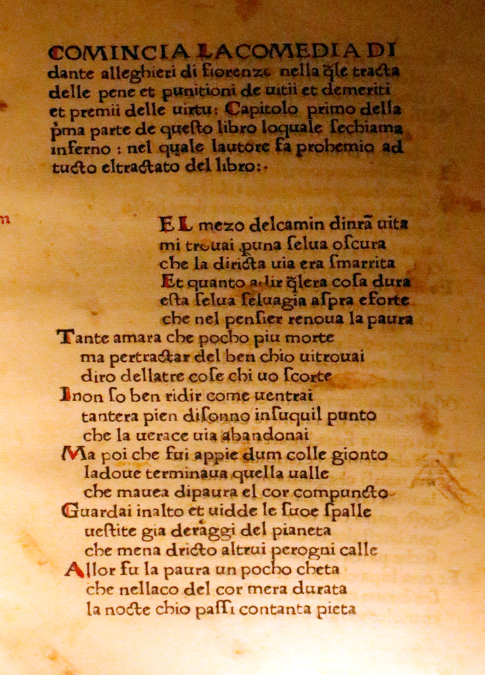 COMINCIA LACOMEDIA DI
dante alleghieri di fiorenze nella q̄le tracta
delle pene et punitioni de uitii et demeriti
et premii delle uirtu: Capitolo primo della
p̄ma parte de questo libro loquale sechiama
inferno : nel quale lautore fa prohemio ad
tucto eltractato del libro:·
EL mezo delcamin dinrā uita
mi trouai p̱una selua oscura
che la diricta uia era smarrita
Et quanto adir q̄lera cosa dura
esta selua seluagia aspra eforte
che nel pensier renoua la paura
Tante amara che pocho piu morte
ma pertractar del ben chio uitrouai
diro dellatre cose chi uo scorte
Inon so ben ridir come uentrai
tantera pien disonno insuquil punto
che la uerace uia abandonai
Ma poi che fui appie dum colle gionto
ladoue terminaua quella ualle
che mauea dipaura el cor compuncto
Guardai inalto et uidde le suoe spalle
uestite gia deraggi del pianeta
che mena dricto altrui perogni calle
Allor fu la paura un pocho cheta
che nellaco del cor mera durata
la nocte chio passi contanta pieta